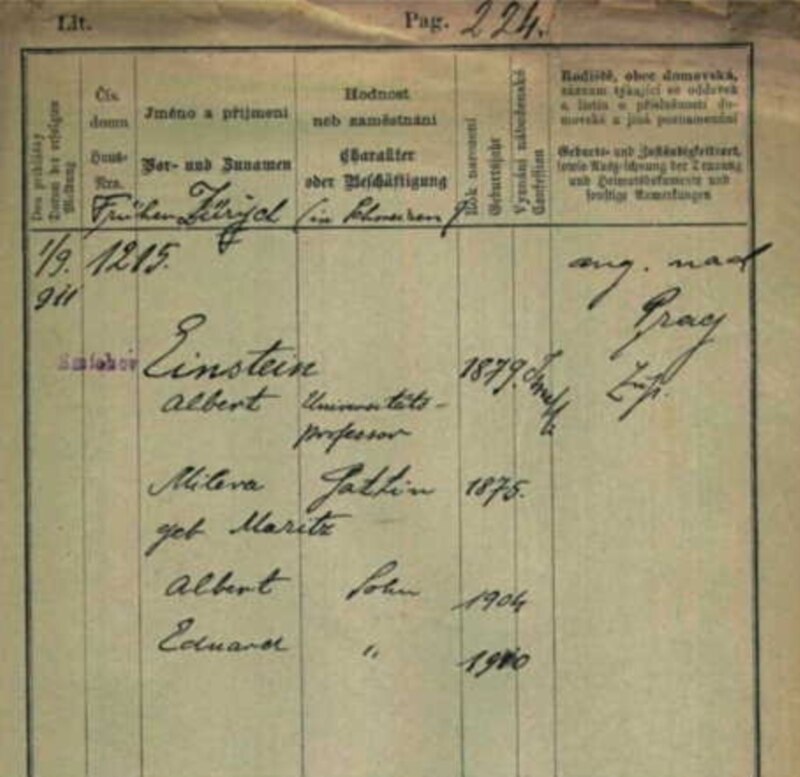 Lit. Pag. 224.
Den přehlášky
Datum der erfolgten
Meldung
Čís.
domu
Haus-
Nro.
Jméno a příjmení
Vor- und Zunamen
Hodnost
neb zaměstnání
Charakter
oder Beschäftigung
Rok narození
Geburtsjahr
Vyznání náboženské
Confession
Rodiště, obec domovská,
záznam týkající se oddavek
a listin o příslušnosti do-
movské a jiná poznamenání
Geburts- und Zuständigkeitsort,
sowie Aufzeichnung der Trauung
und Heimatsdokumente und
sonstige Anmerkungen
Früher Zürich (in Schweizen)
1/9. 1215. ang. nad
911 Prag
Smíchov Einstein 1879.
Albert Universitäts-
professor
Mileva Gattin 1875.
geb Maritz
Albert Sohn 1904
Eduard " 1910